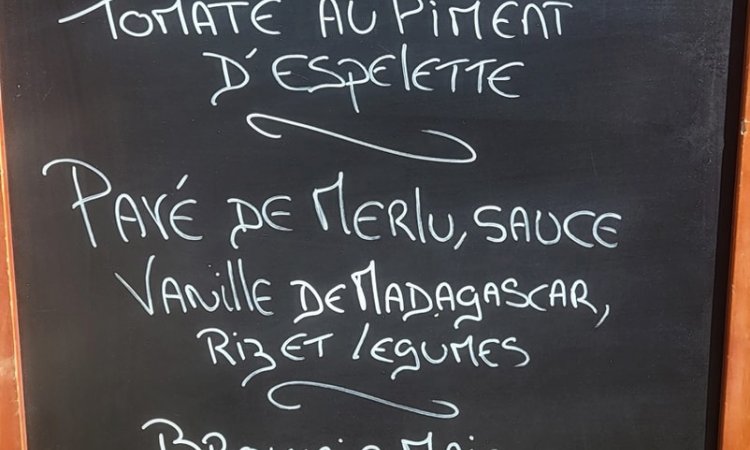 TOMATE AU PIMENT
D'ESPELETTE
PAVÉ DE MERLU, SAUCE
VANILLE DE MADAGASCAR,
RIZ ET LEGUMES